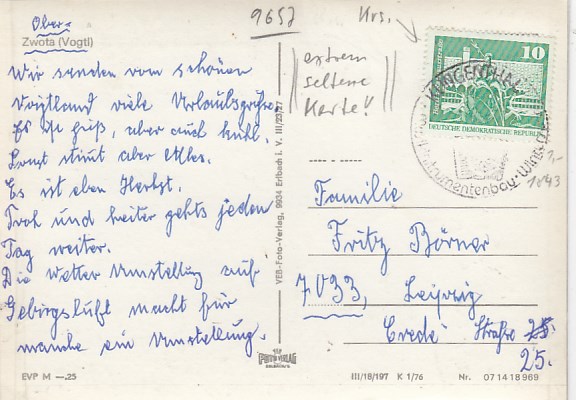 9657
Krs.
Ober-
Zwota (Vogtl)
extrem
seltene
Karte!!
10
KLINGENTHAL
DEUTSCHE DEMOKRATISCHE REPUBLIK
1,-
1843
Wir senden vom schönen
Voigtland viele Urlaubsgrüße
Es ist frisch, aber auch kühl.
Sonst stimt aber alles.
Es ist eben Herbst.
Froh und heiter gehts jeden
Tag weiter.
Die Wetter Umstellung auf
Gebirgsluft macht für
manche ein Umstellung.
VEB-Foto-Verlag, 9934 Erlbach i. V. III/2327
Familie
Fritz Börner
7033, Leipzig
Straße 25.
25.
FOTO VERLAG
EVP M —.25
III/18/197 K 1/76
Nr. 07 14 18 969